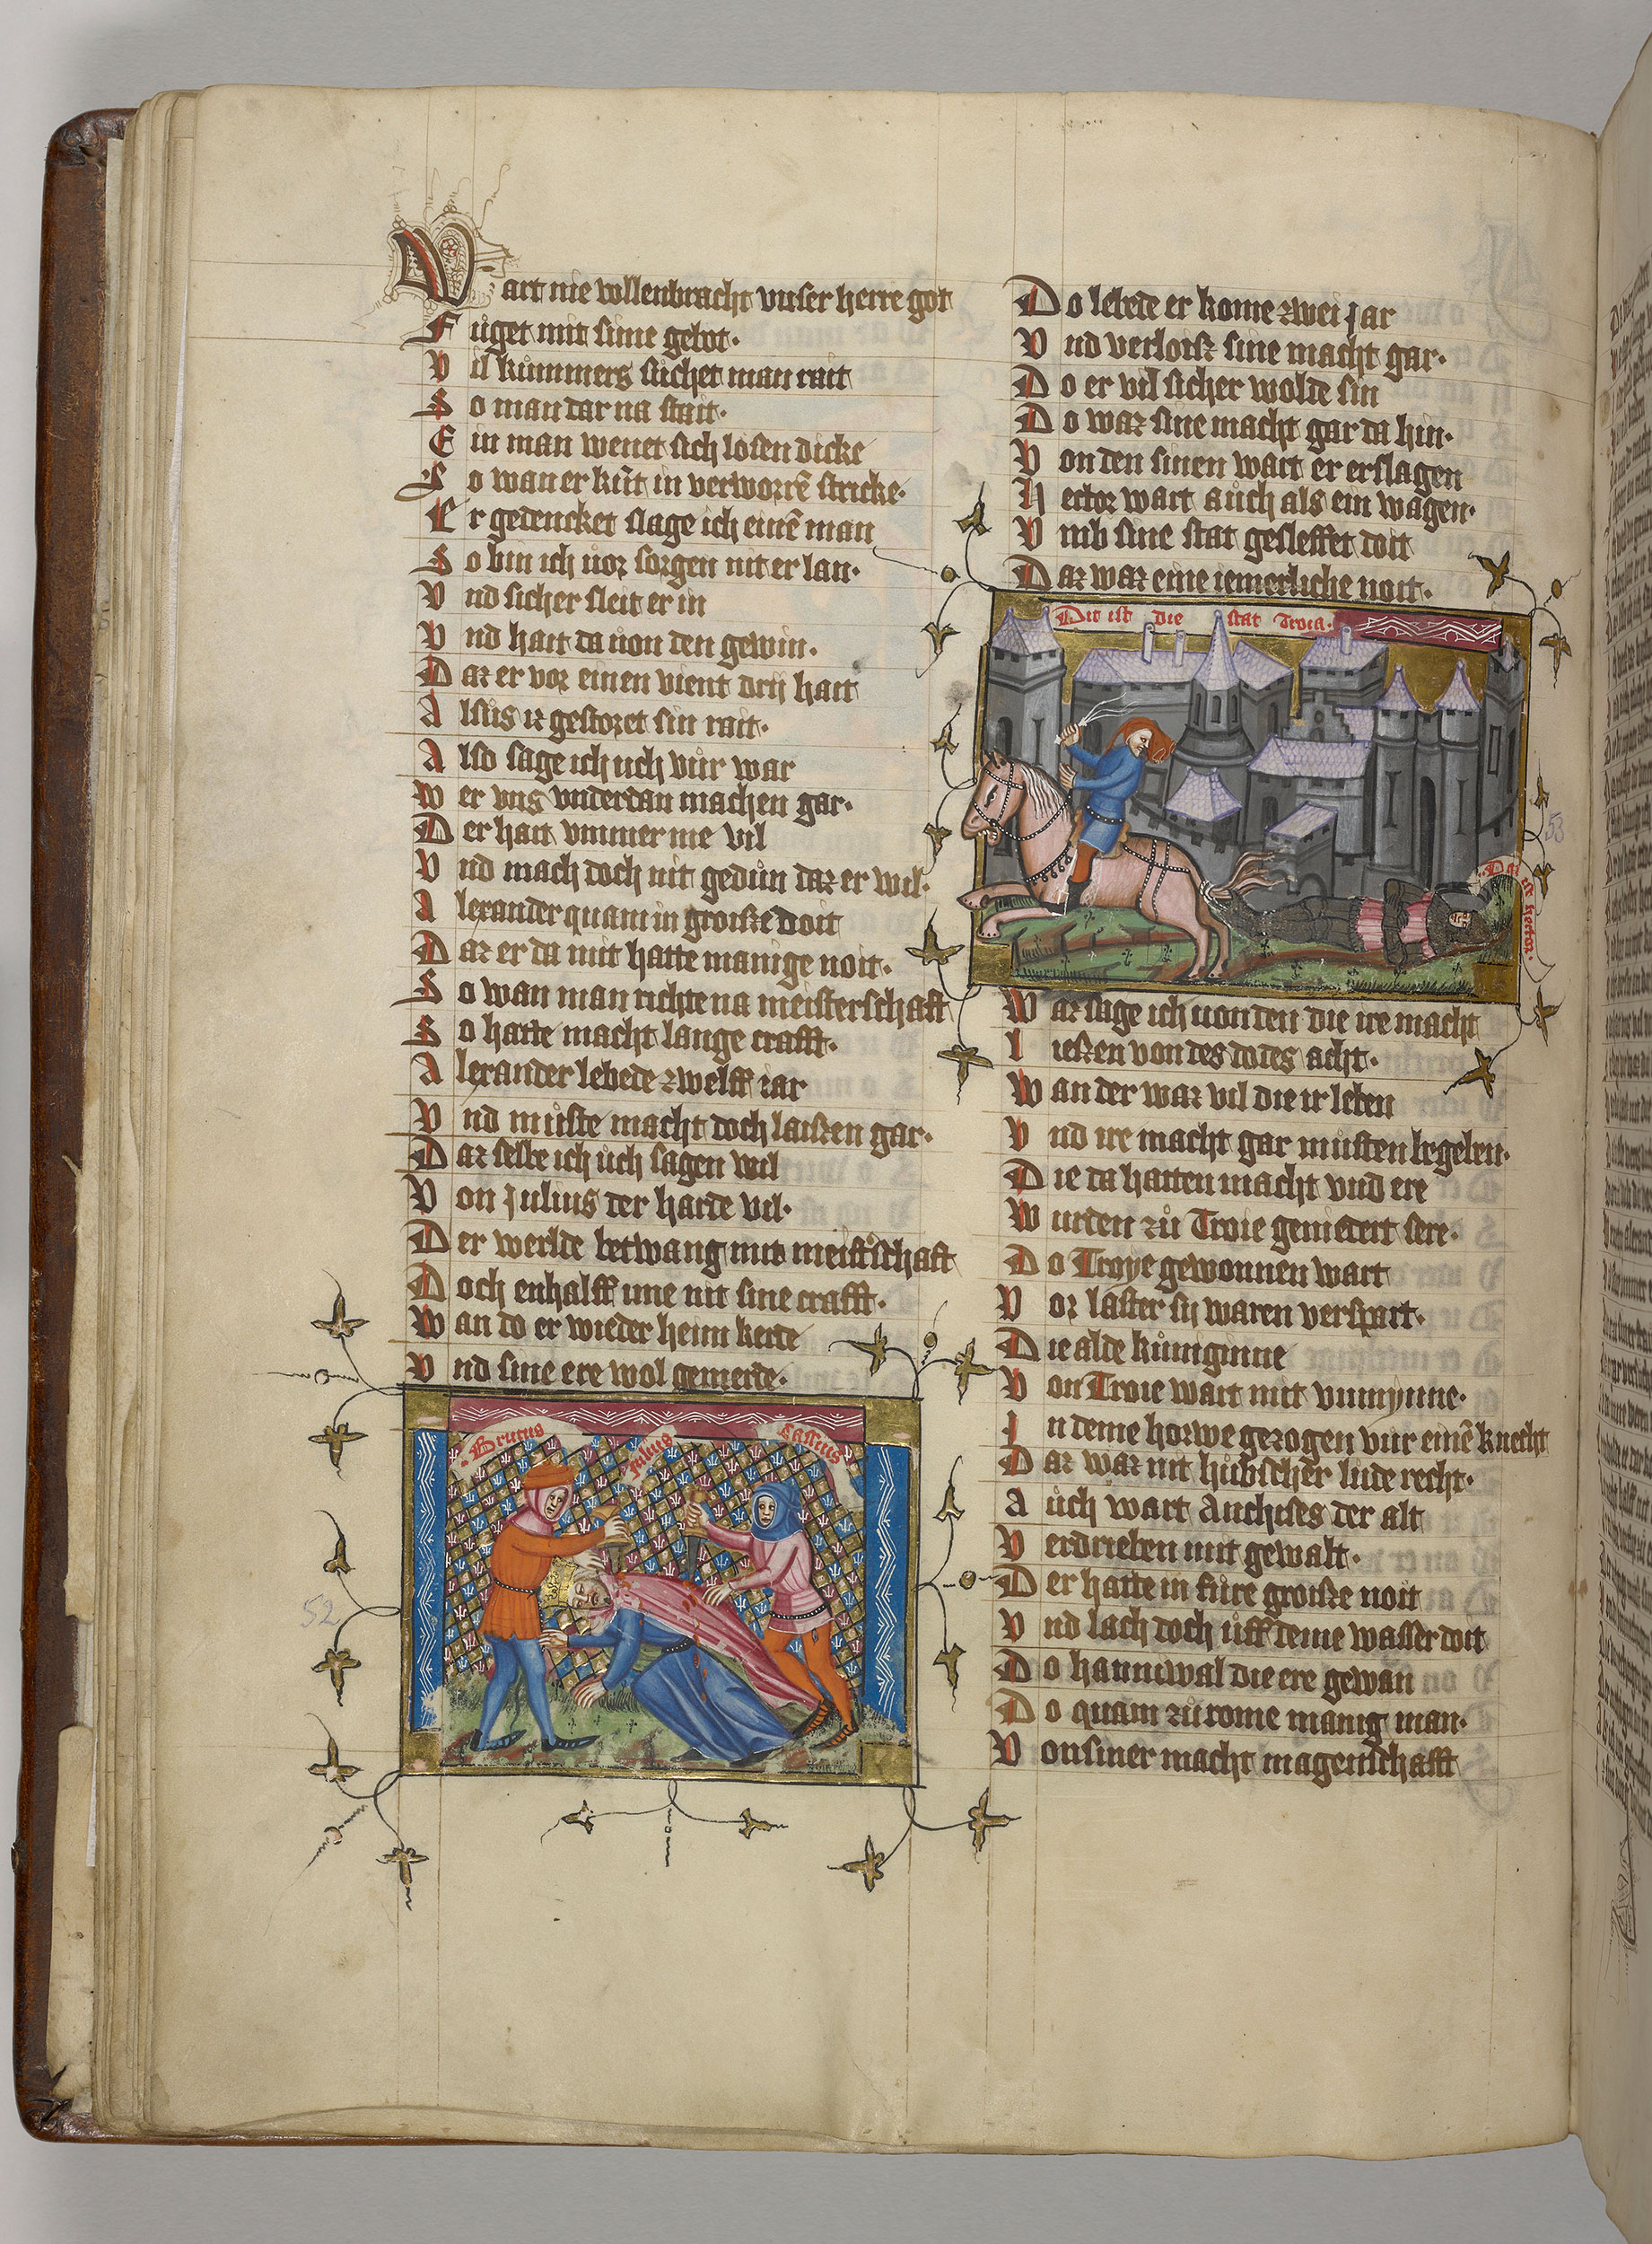 Wart nie vollenbracht vnser herre got
Fůget mit sime gebot.
Vil kummers sůchet man rait
So man dar na stait.
Ein man wenet sich losen dicke
So wan er kūt in verworrē stricke.
Er gedencket slage ich einē man
So bin ich vor sorgen nit erlan.
Vnd sicher sleit er in
Vnd hait da von den gewin.
Daz er vor einen vient drij hait
Alsus iz gestozet sin rait.
Also sage ich uch vůr war
Wer vns vnderdan machen gar.
Der hait vmmer me vil
Vnd mach doch nit gedůn daz er wil.
Alexander quam in groisze doit
Daz er da mit hatte manige noit.
So wan man richte na meisterschafft
So hatte macht lange crafft.
Alexander lebede zwelff iar
Vnd můste macht doch laiszen gar.
Daz selbe ich ůch sagen wil
Von Julius der harde vil.
Der werlde betwang mit meist'schaft
Doch enhalff ime nit sine crafft.
Wan do er wieder heim kerte
Vnd sine ere wol gemerde.
Brutus
Julius
Cassius
52
Do lebede er kome zwei jar
Vnd verloisz sine macht gar.
Do er vil sicher wolde sin
Do waz sine macht gar da hin.
Von den sinen wart er erslagen
Hector wart aůch als ein wagen.
Vmb sine stat gesleffet doit
Daz waz eine iemerliche noit.
Dit ist die stat Troia.
Daz ist hector.
53
Waz sage ich von den die ire macht
Lieszen von des dodes acht.
Wan der waz vil die ir leben
Vnd ire macht gar můsten begeben.
Die da hatten macht vnd ere
Wurden zů Troie geniedert sere.
Do Troye gewonnen wart
Vor laster sij waren verspart.
Die alde kůniginne
Von Troie wart mit vnmynne.
In deme horwe gezogen vur einē knecht
Daz waz nit hůbscher lude recht.
Aůch wart Anchises der alt
Verdrieben mit gewalt.
Der hatte in fůre groisze noit
Vnd lach doch ůff deme wasser doit
Do hanniwal die ere gewan
Do quam zů rome manig man.
Von siner macht magenschafft